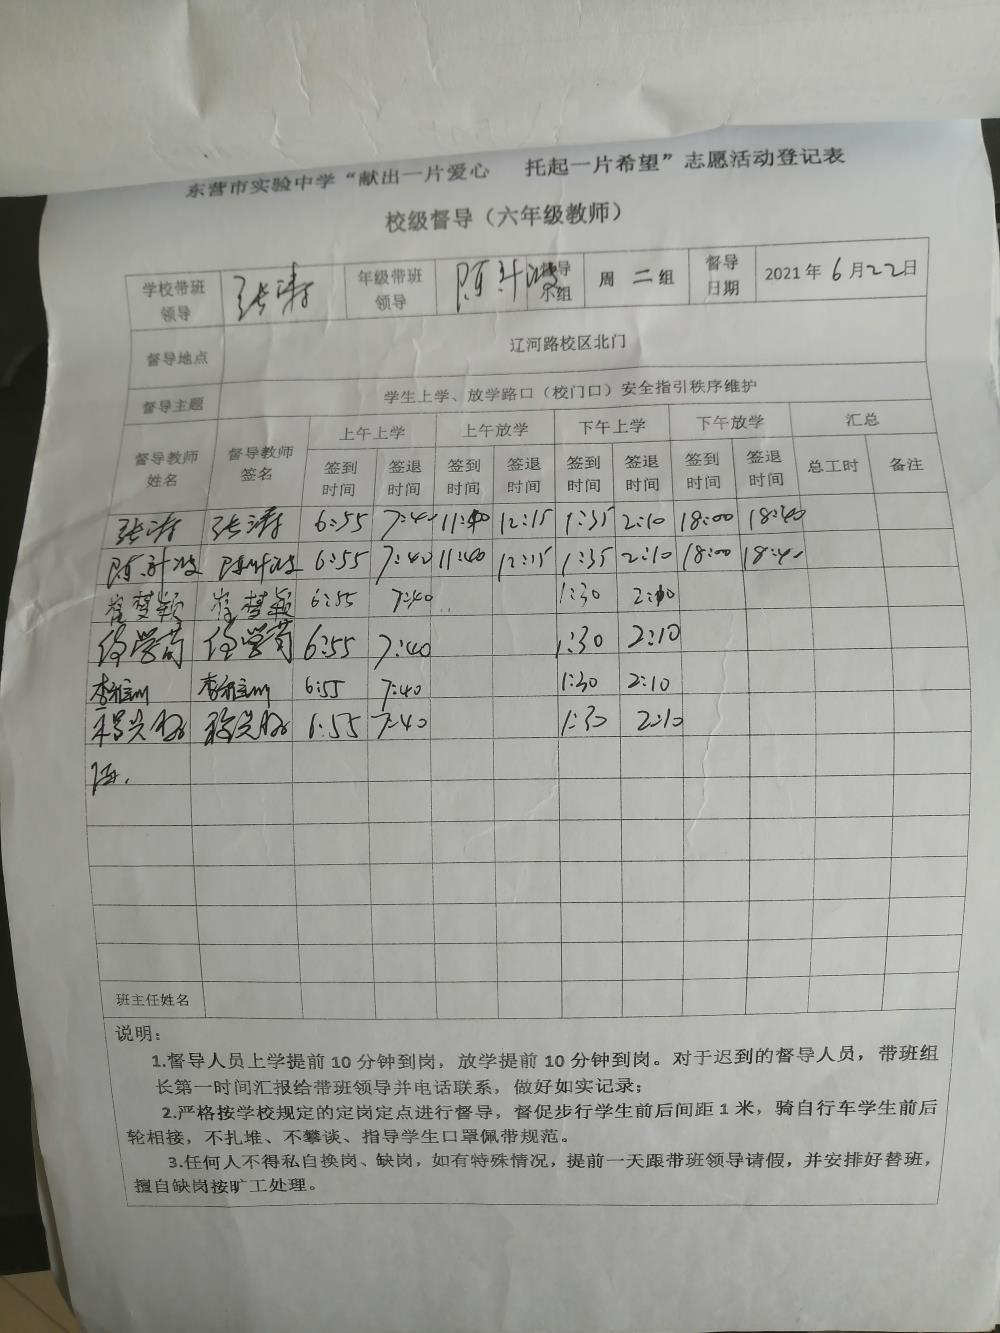 东营市实验中学“献出一片爱心 托起一片希望”志愿活动登记表
校级督导（六年级教师）
学校带班领导 张涛 年级带班领导 陈 督导小组 周 二 组 督导日期 2021 年 6 月 22 日
督导地点 辽河路校区北门
督导主题 学生上学、放学路口（校门口）安全指引秩序维护
督导教师姓名 督导教师签名 上午上学 上午放学 下午上学 下午放学 汇总
签到时间 签退时间 签到时间 签退时间 签到时间 签退时间 签到时间 签退时间 总工时 备注
张涛 张涛 6:55 7:40 11:40 12:15 1:35 2:10 18:00 18:40
陈 陈 6:55 7:40 11:40 12:15 1:35 2:10 18:00 18:40
崔梦颖 崔梦颖 6:55 7:40 1:30 2:10
学菊 学菊 6:55 7:40 1:30 2:10
李 李 6:55 7:40 1:30 2:10
6:55 7:40 1:30 2:10
班主任姓名
说明：
1.督导人员上学提前 10 分钟到岗，放学提前 10 分钟到岗。对于迟到的督导人员，带班组
长第一时间汇报给带班领导并电话联系，做好如实记录；
2.严格按学校规定的定岗定点进行督导，督促步行学生前后间距 1 米，骑自行车学生前后
轮相接，不扎堆、不攀谈、指导学生口罩佩带规范。
3.任何人不得私自换岗、缺岗，如有特殊情况，提前一天跟带班领导请假，并安排好替班，
擅自缺岗按旷工处理。